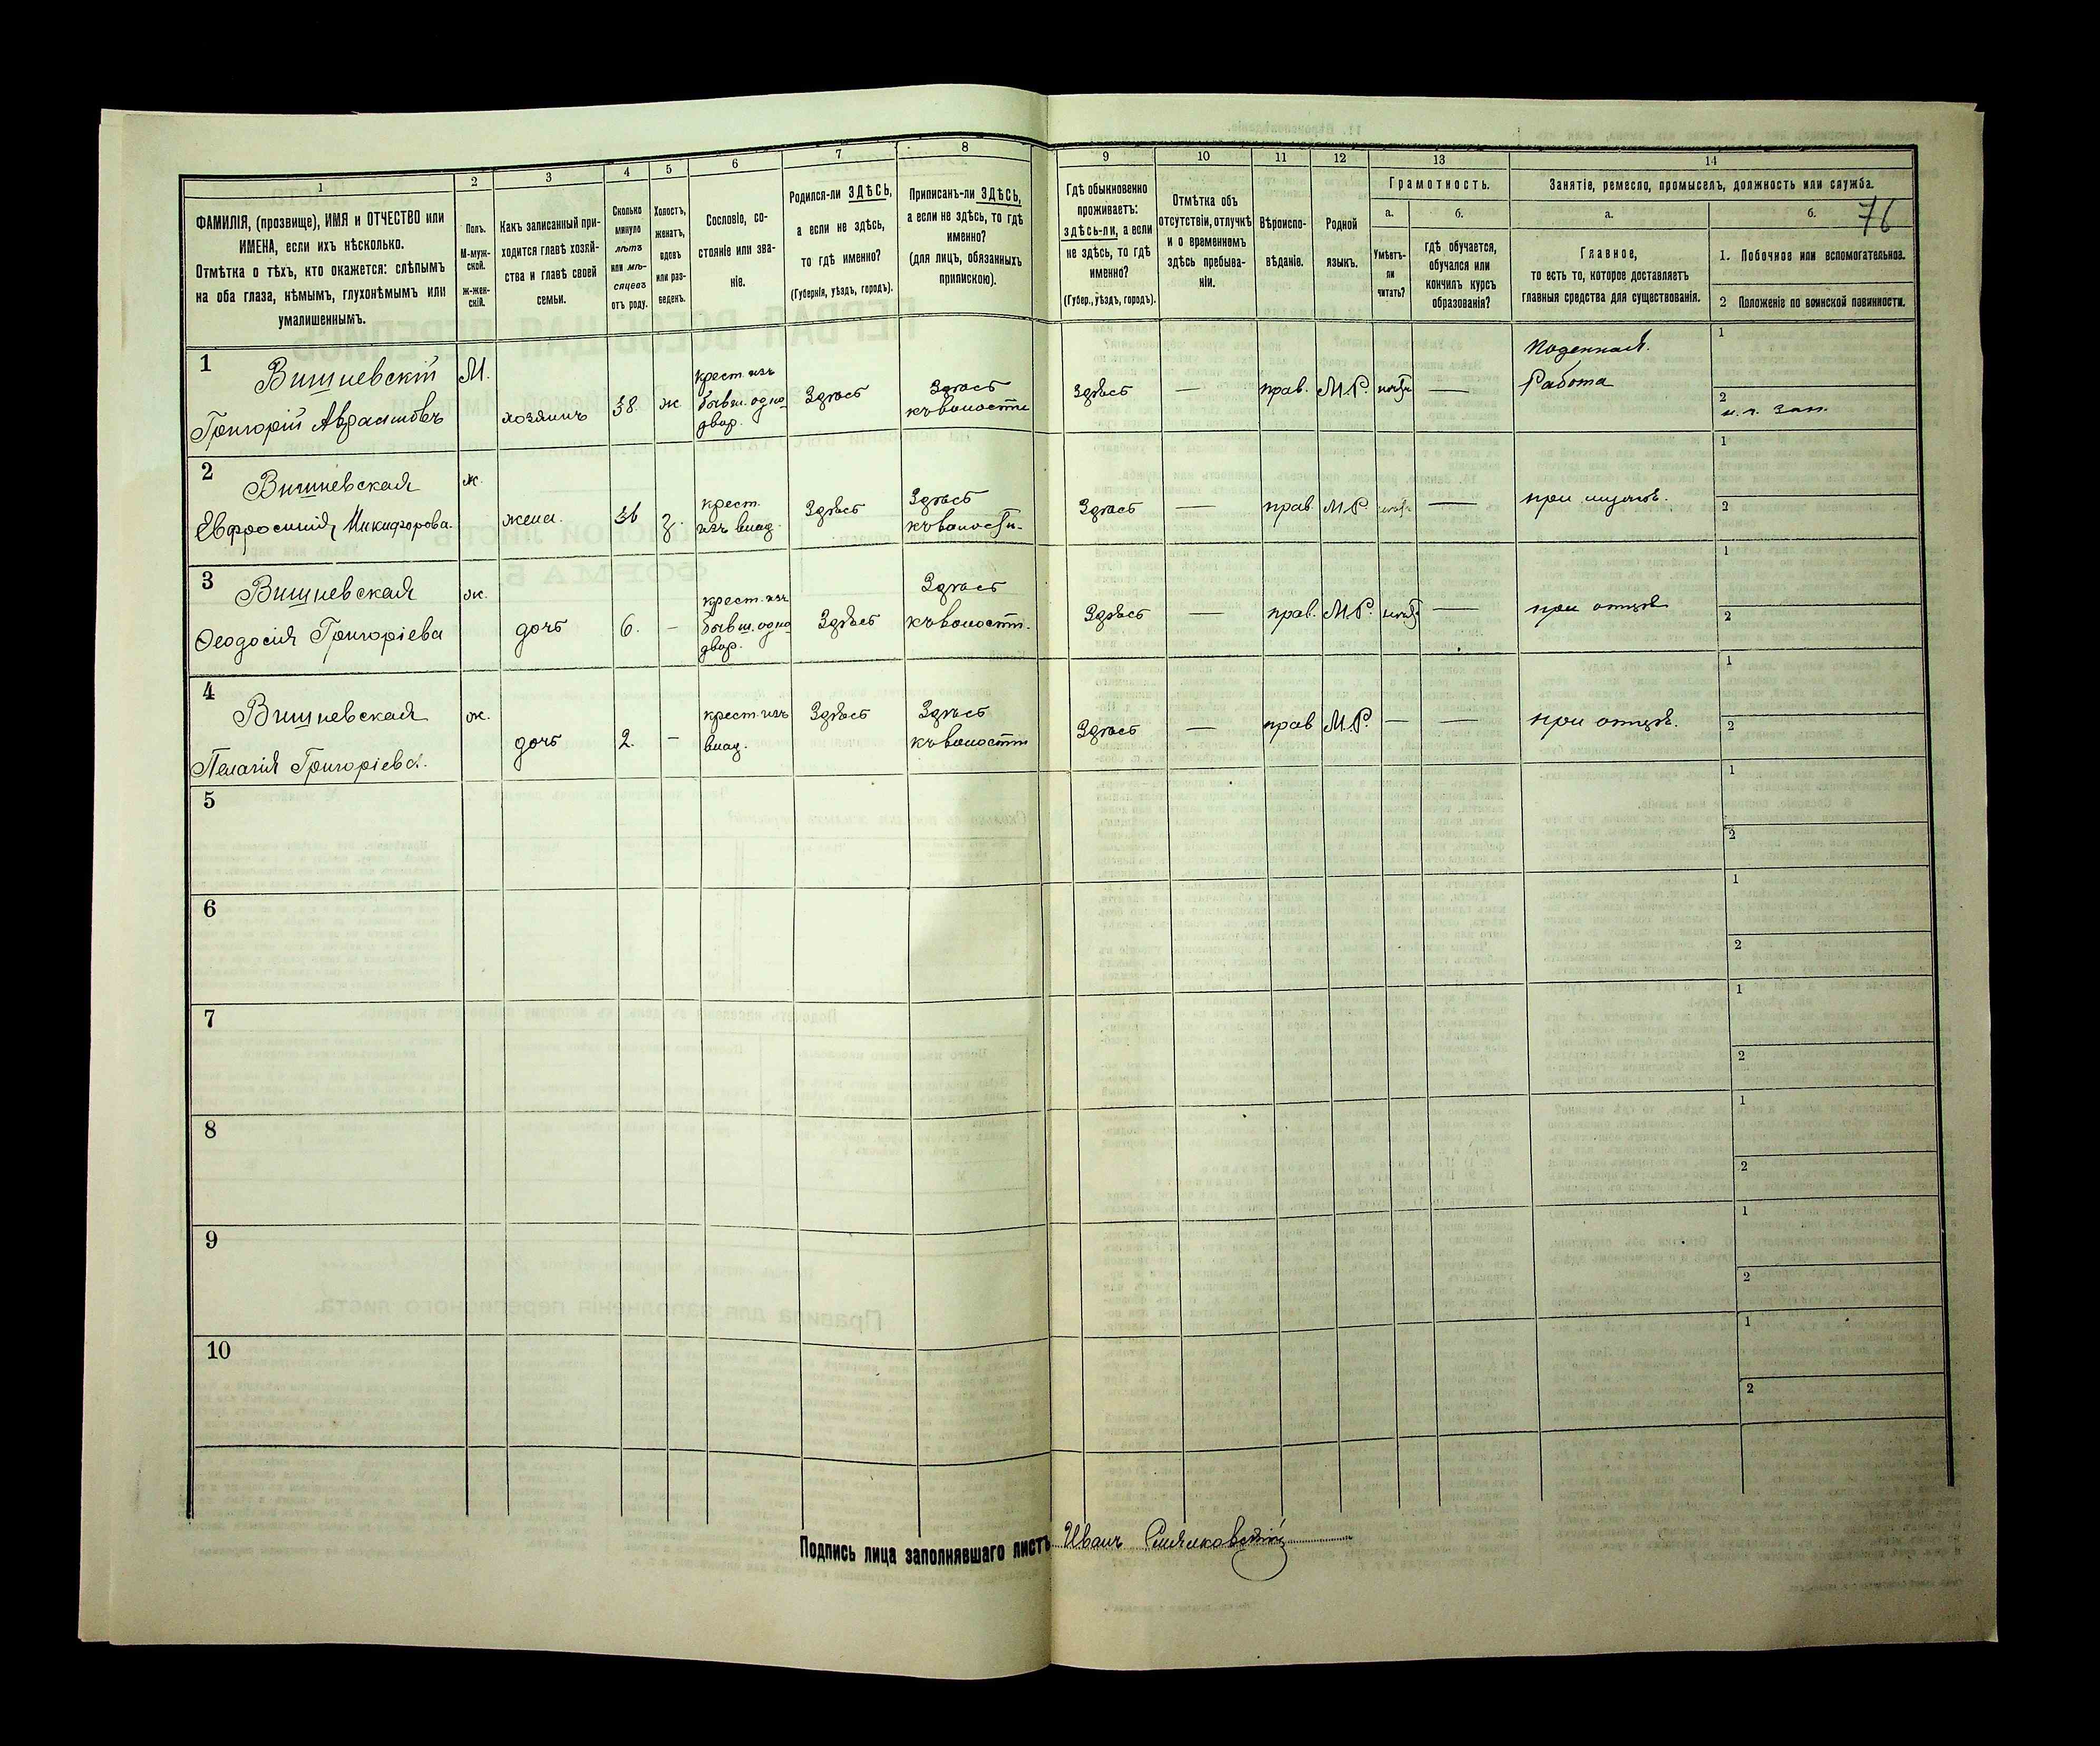 1 2 3 4 5 6 7 8 9 10 11 12 13 14
ФАМИЛІЯ, (прозвище), ИМЯ и ОТЧЕСТВО или
ИМЕНА, если ихъ нѣсколько.
Отмѣтка о тѣхъ, кто окажется: слѣпымъ
на оба глаза, нѣмымъ, глухонѣмымъ или
умалишеннымъ.
Полъ.
М-муж-
ской.
ж-жен-
скій.
Какъ записанный при-
ходится главѣ хозяй-
ства и главѣ своей
семьи.
Сколько
минуло
лѣтъ
или мѣ-
сяцевъ
отъ роду.
Холостъ,
женатъ,
вдовъ
или раз-
веденъ.
Сословіе, со-
стояніе или зва-
ніе.
Родился-ли ЗДѢСЬ,
а если не здѣсь,
то гдѣ именно?
(Губернія, уѣздъ, городъ).
Приписанъ-ли ЗДѢСЬ,
а если не здѣсь, то гдѣ
именно?
(для лицъ, обязанныхъ
припискою).
Гдѣ обыкновенно
проживаетъ:
здѣсь-ли, а если
не здѣсь, то гдѣ
именно?
(Губер., уѣздъ, городъ).
Отмѣтка объ
отсутствіи, отлучкѣ
и о временномъ
здѣсь пребыва-
ніи.
Вѣроиспо-
вѣданіе.
Родной
языкъ.
Грамотность.
а.
Умѣетъ-
ли
читать?
б.
гдѣ обучается,
обучался или
кончилъ курсъ
образованія?
Занятіе, ремесло, промыселъ, должность или служба.
а.
Главное,
то есть то, которое доставляетъ
главныя средства для существованія.
б.
76
1. Побочное или вспомогательное.
2 Положеніе по воинской повинности.
1
Вишневскій
Григорій Авраамовъ
М.
хозяинъ
38
ж
крест. изъ
бывш. одно
двор.
Здѣсь
Здѣсь
къ волости
Здѣсь
—
прав.
М.Р.
нѣтъ
—
Поденная
Работа
1
2
2
Вишневская
Евфросинія Никифорова.
ж.
жена.
36
з.
крест.
изъ влад.
Здѣсь
Здѣсь
къ волости.
Здѣсь
—
прав
М.Р
нѣтъ
—
при мужѣ.
1
2
3
Вишневская
Ѳеодосія Григоріева
ж.
дочь
6.
—
крест. изъ
бывш. одно
двор.
Здѣсь
Здѣсь
къ волости.
Здѣсь
—
прав.
М.Р.
нѣтъ
—
при отцѣ
1
2
4
Вишневская
Пелагія Григоріева.
ж.
дочь
2.
—
крест. изъ
влад.
Здѣсь
Здѣсь
къ волости
Здѣсь
—
прав
М.Р.
—
—
при отцѣ.
1
2
5
1
2
6
1
2
7
1
2
8
1
2
9
1
2
10
1
2
Подпись лица заполнявшаго листъ Иванъ